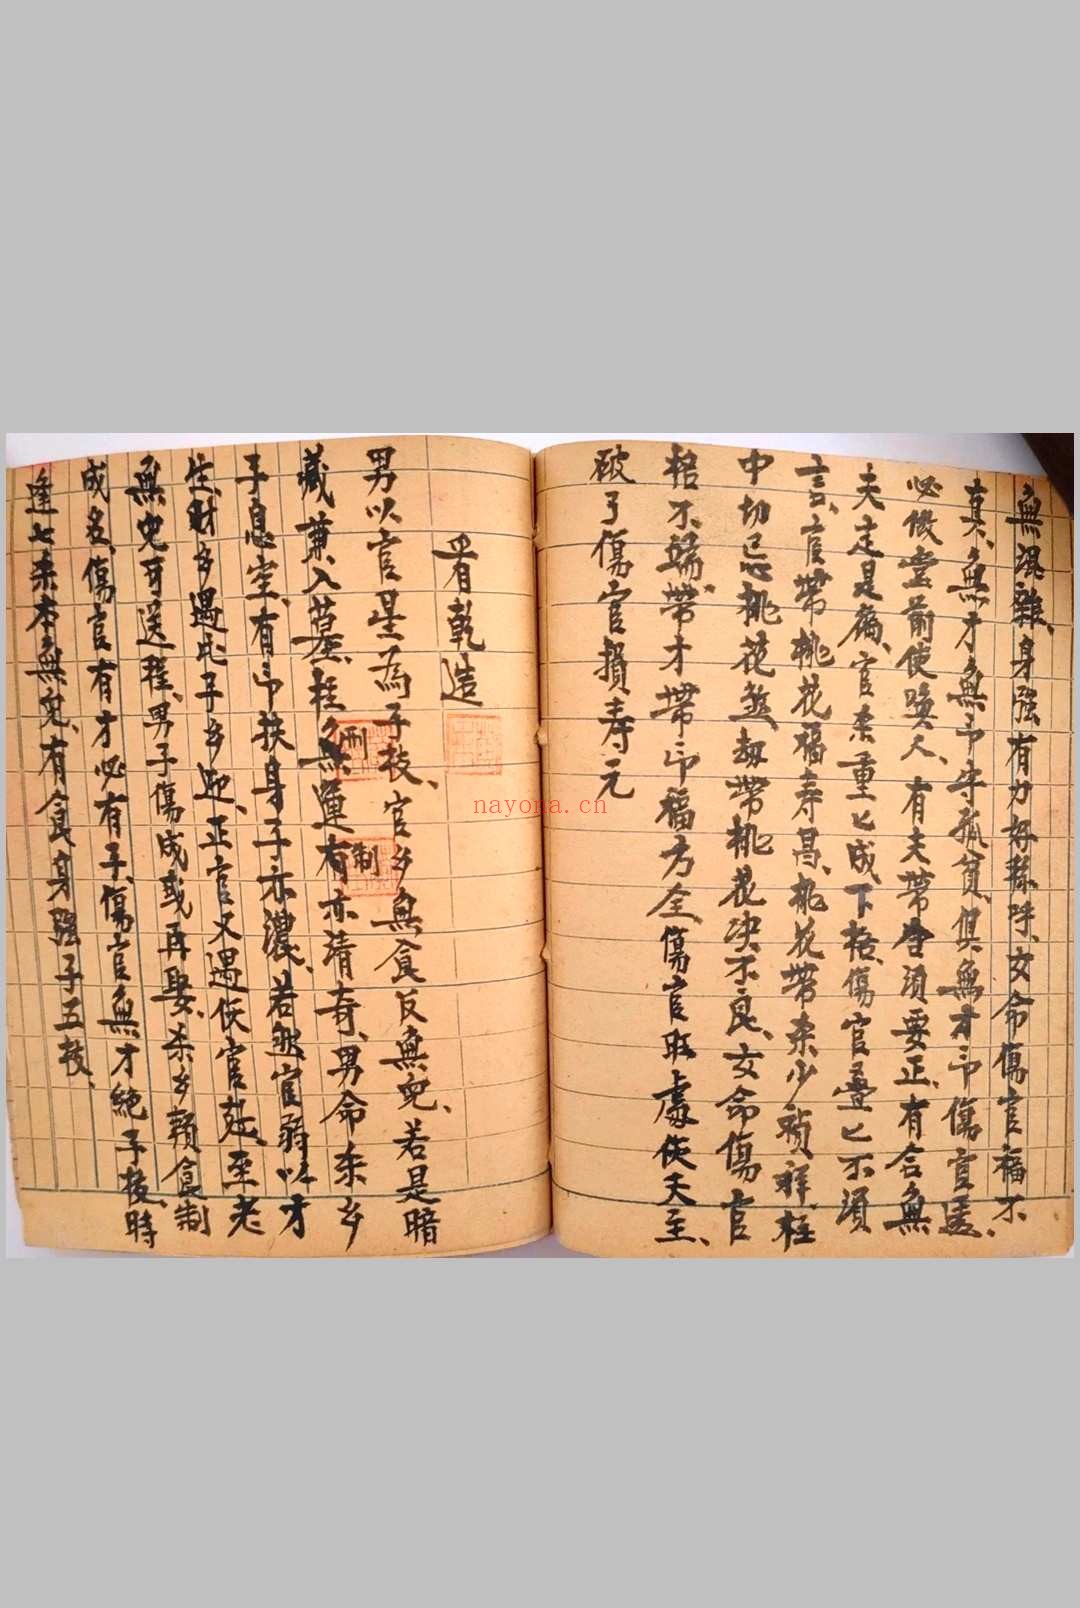 無混雜、身强有力好稱呼、女命傷官福不
真、無才無印守孤貧、俱無才印傷官逞、
必做堂前使喚人、有夫帶合須要正、有合無
夫定是腐、官杀重匕成下格、傷官叠匕不須
言、官帶桃花福寿昌、桃花帶杀少禎祥、柱
中切忌桃花煞、劫帶桃花决不良、女命傷官
格不端、帶才帶印福方全、傷官旺處傷夫主、
破了傷官損寿元
看乾造
男以官星為子枝、官多無食反無兒、若是暗
藏兼入墓、柱無運有亦清奇、男命杀多
刑 制
子息空、有印扶身子亦濃、若逢官弱以才
生、財多遇比子多迎、正官又遇伤官尅、至老
無兒可送程、男子傷成或再娶、杀多賴食制
成名、傷官有才必有子、傷官無才絶子後、時
逢七杀本無兒、有食身强子五枝、
nayona.cn